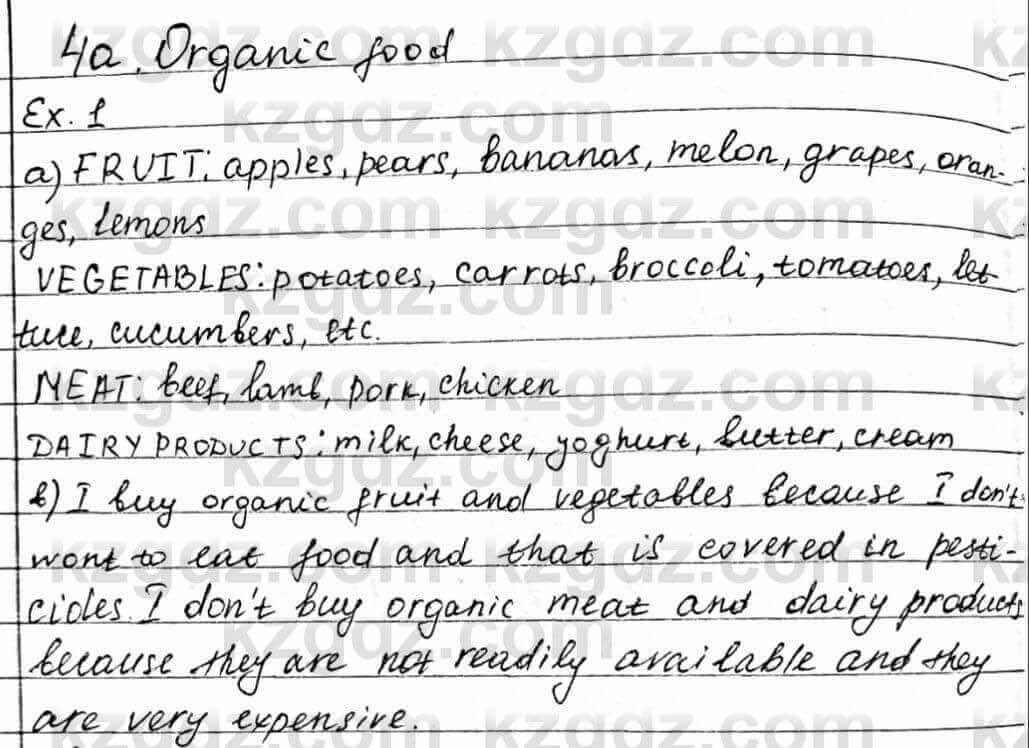 4a. Organic food
Ex. 1
a) FRUIT: apples, pears, bananas, melon, grapes, oran-
ges, lemons
VEGETABLES: potatoes, carrots, broccoli, tomatoes, let-
tuce, cucumbers, etc.
MEAT: beef, lamb, pork, chicken
DAIRY PRODUCTS: milk, cheese, yoghurt, butter, cream
b) I buy organic fruit and vegetables because I don't
wont to eat food and that is covered in pesti-
cides. I don't buy organic meat and dairy products
because they are not readily available and they
are very expensive.